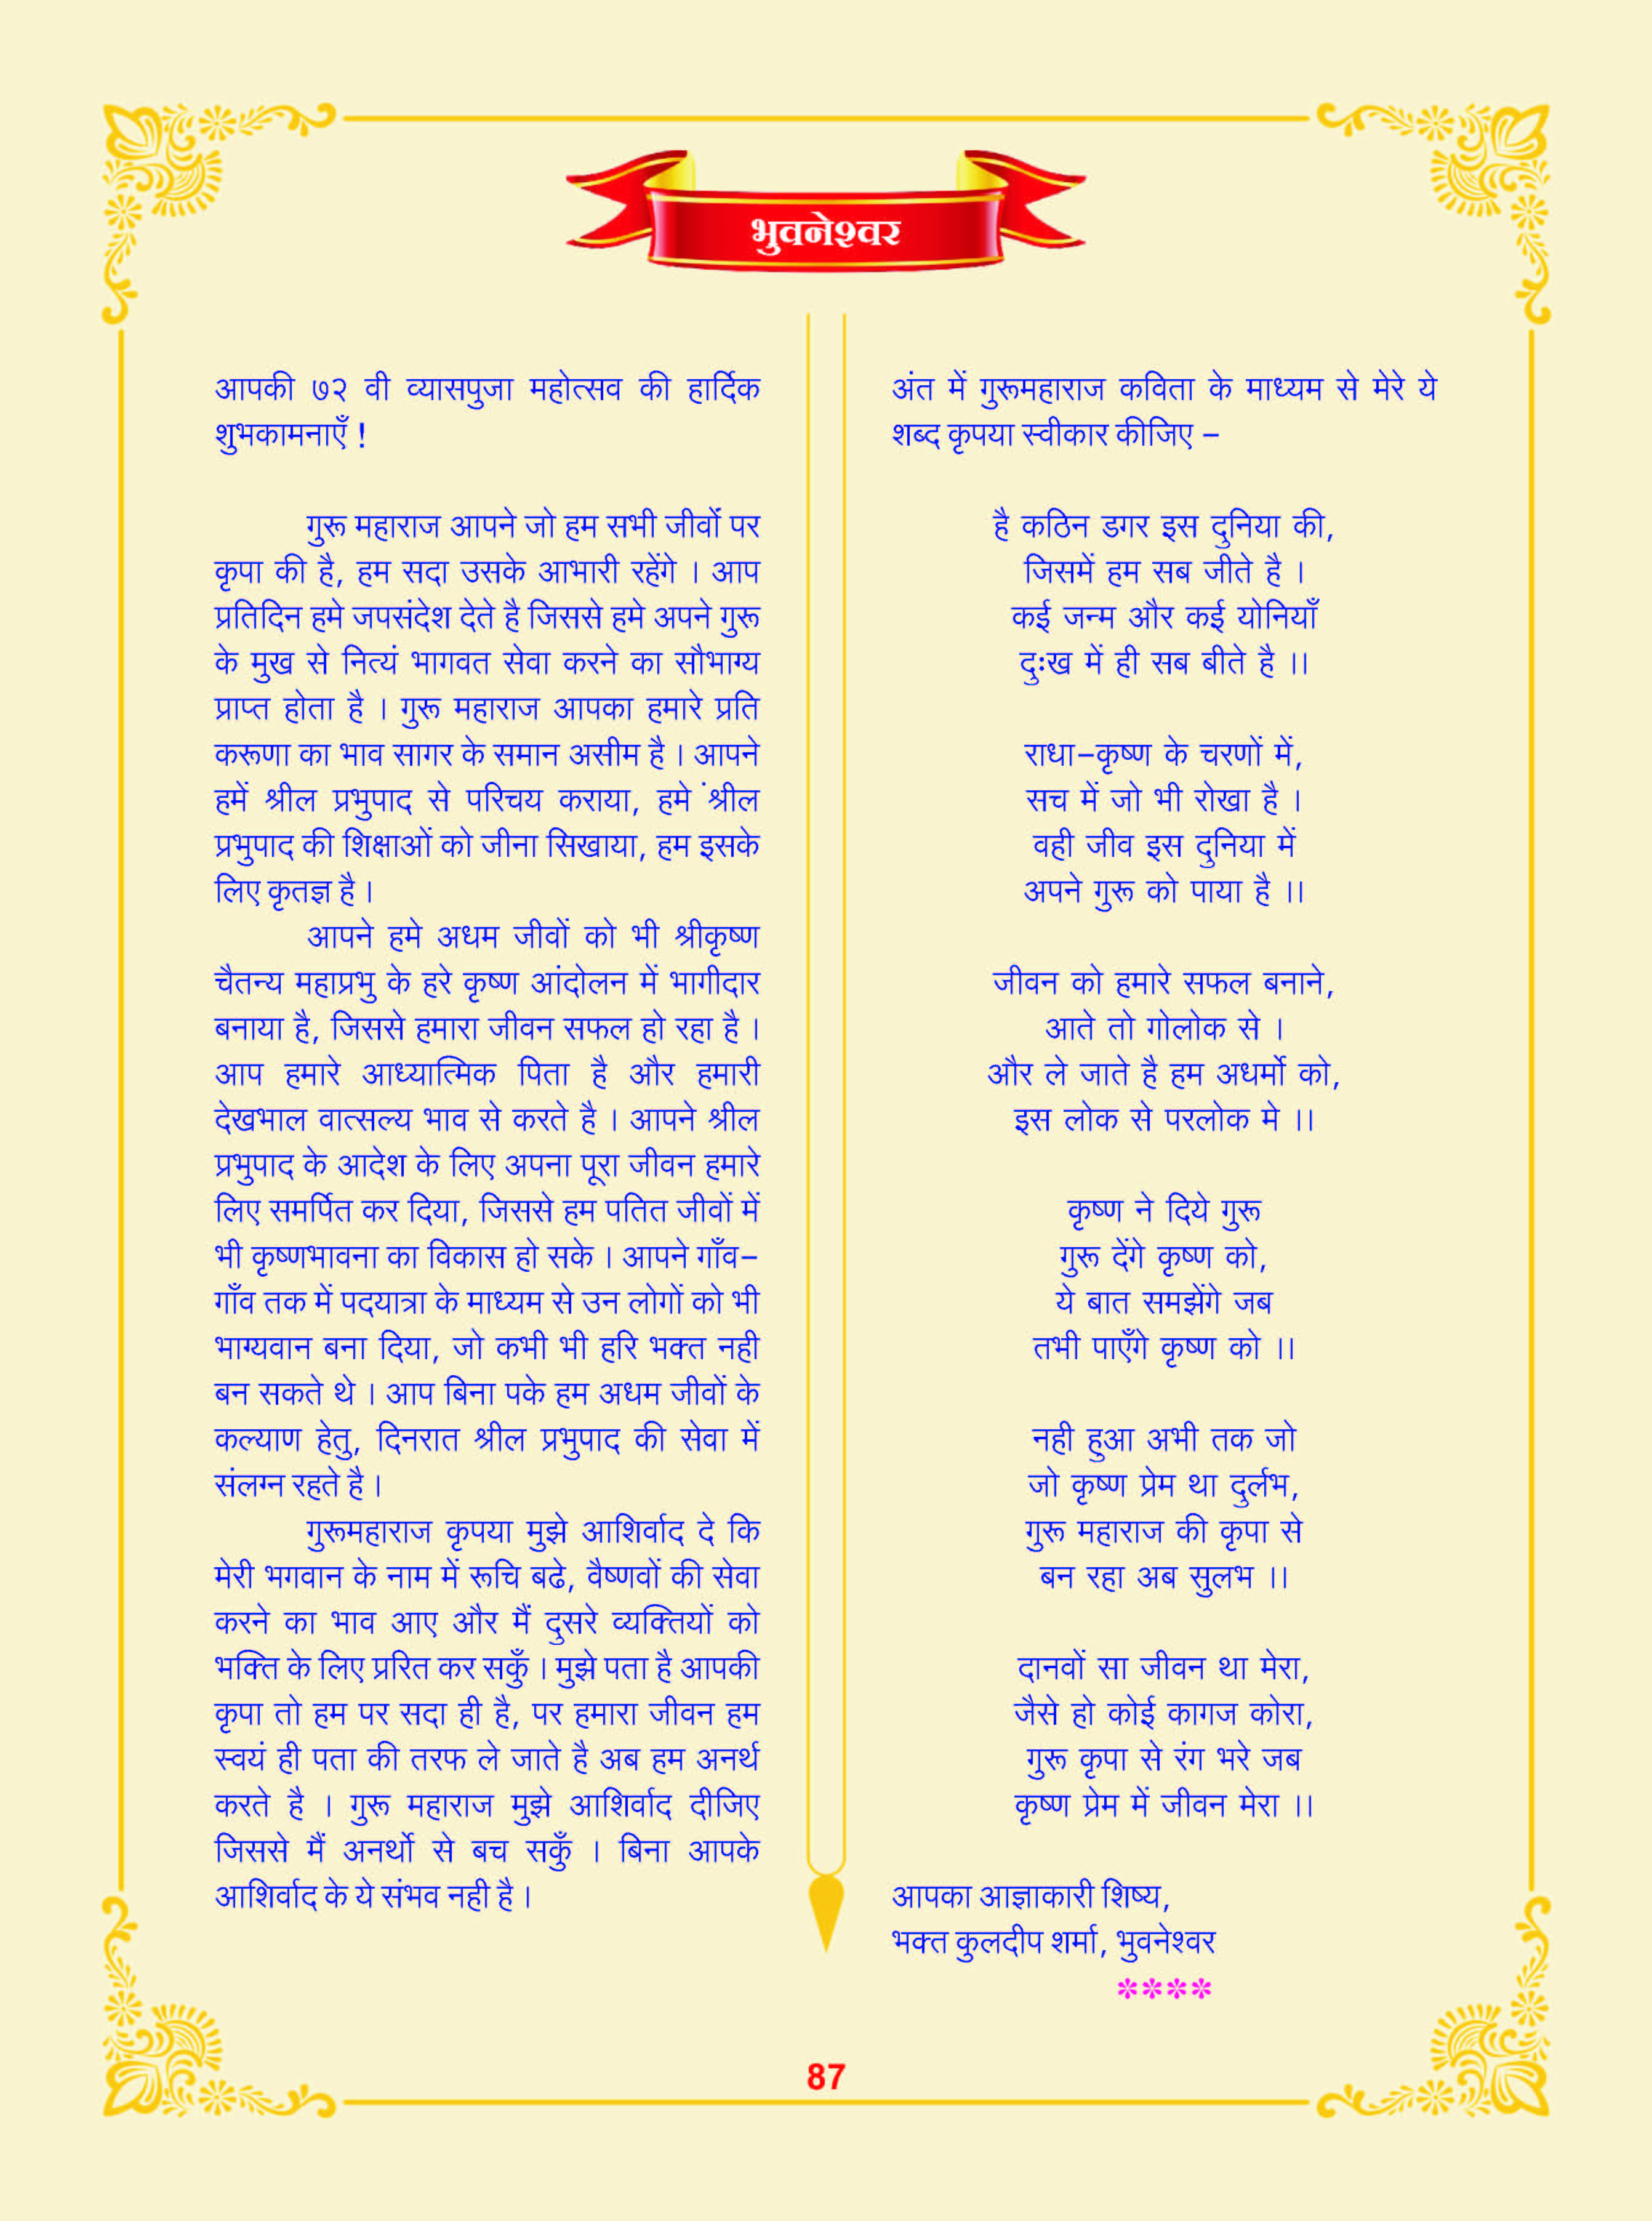 भुवनेश्वर
आपकी ७२ वी व्यासपुजा महोत्सव की हार्दिक
शुभकामनाएँ !
गुरू महाराज आपने जो हम सभी जीवों पर
कृपा की है, हम सदा उसके आभारी रहेंगे । आप
प्रतिदिन हमे जपसंदेश देते है जिससे हमे अपने गुरू
के मुख से नित्यं भागवत सेवा करने का सौभाग्य
प्राप्त होता है । गुरू महाराज आपका हमारे प्रति
करूणा का भाव सागर के समान असीम है । आपने
हमें श्रील प्रभुपाद से परिचय कराया, हमे ंश्रील
प्रभुपाद की शिक्षाओं को जीना सिखाया, हम इसके
लिए कृतज्ञ है ।
आपने हमे अधम जीवों को भी श्रीकृष्ण
चैतन्य महाप्रभु के हरे कृष्ण आंदोलन में भागीदार
बनाया है, जिससे हमारा जीवन सफल हो रहा है ।
आप हमारे आध्यात्मिक पिता है और हमारी
देखभाल वात्सल्य भाव से करते है । आपने श्रील
प्रभुपाद के आदेश के लिए अपना पूरा जीवन हमारे
लिए समर्पित कर दिया, जिससे हम पतित जीवों में
भी कृष्णभावना का विकास हो सके । आपने गाँव-
गाँव तक में पदयात्रा के माध्यम से उन लोगों को भी
भाग्यवान बना दिया, जो कभी भी हरि भक्त नही
बन सकते थे । आप बिना पके हम अधम जीवों के
कल्याण हेतु, दिनरात श्रील प्रभुपाद की सेवा में
संलग्न रहते है ।
गुरूमहाराज कृपया मुझे आशिर्वाद दे कि
मेरी भगवान के नाम में रूचि बढे, वैष्णवों की सेवा
करने का भाव आए और मैं दुसरे व्यक्तियों को
भक्ति के लिए प्ररित कर सकुँ । मुझे पता है आपकी
कृपा तो हम पर सदा ही है, पर हमारा जीवन हम
स्वयं ही पता की तरफ ले जाते है अब हम अनर्थ
करते है । गुरू महाराज मुझे आशिर्वाद दीजिए
जिससे मैं अनर्थो से बच सकुँ । बिना आपके
आशिर्वाद के ये संभव नही है ।
अंत में गुरूमहाराज कविता के माध्यम से मेरे ये
शब्द कृपया स्वीकार कीजिए -
है कठिन डगर इस दुनिया की,
जिसमें हम सब जीते है ।
कई जन्म और कई योनियाँ
दुःख में ही सब बीते है ।।
राधा-कृष्ण के चरणों में,
सच में जो भी रोखा है ।
वही जीव इस दुनिया में
अपने गुरू को पाया है ।।
जीवन को हमारे सफल बनाने,
आते तो गोलोक से ।
और ले जाते है हम अधर्मो को,
इस लोक से परलोक मे ।।
कृष्ण ने दिये गुरू
गुरू देंगे कृष्ण को,
ये बात समझेंगे जब
तभी पाएँगे कृष्ण को ।।
नही हुआ अभी तक जो
जो कृष्ण प्रेम था दुर्लभ,
गुरू महाराज की कृपा से
बन रहा अब सुलभ ।।
दानवों सा जीवन था मेरा,
जैसे हो कोई कागज कोरा,
गुरू कृपा से रंग भरे जब
कृष्ण प्रेम में जीवन मेरा ।।
आपका आज्ञाकारी शिष्य,
भक्त कुलदीप शर्मा, भुवनेश्वर
****
87